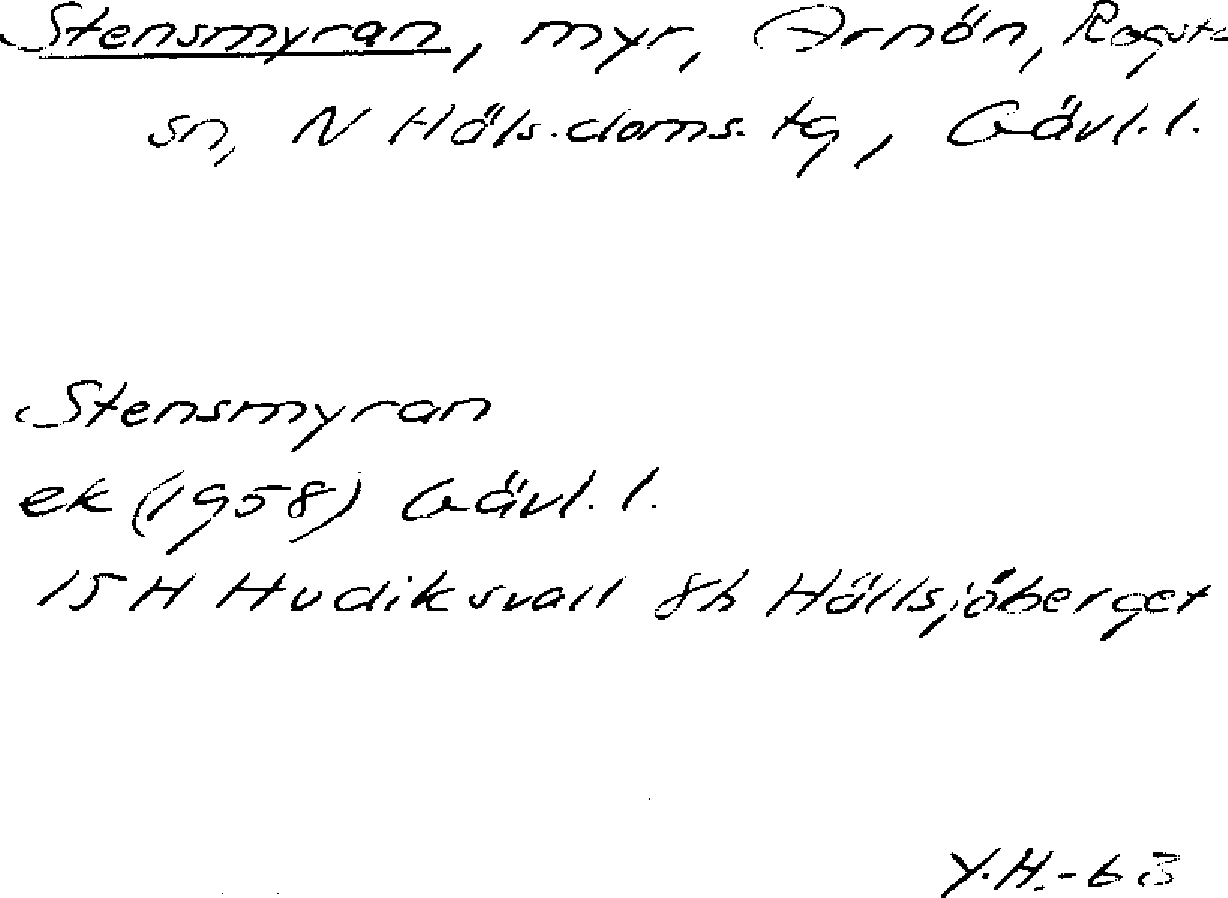 Stensmyran, myr, Arnön, Rogsta
sn, N Häls. doms. tg, Gävl. l.
Stensmyran
ek (1958) Gävl. l.
15 H Hudiksvall 8h Hällsjöberget
Y.H.-63